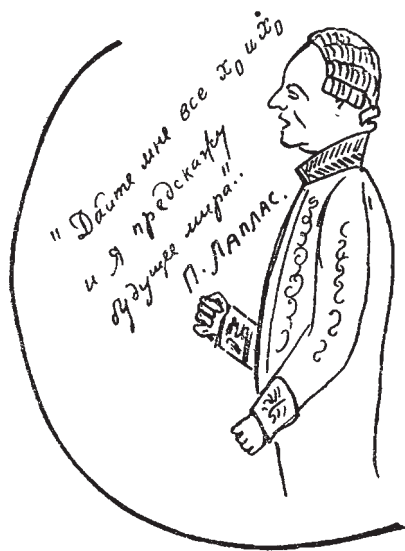 "Дайте мне все x₀ и ẋ₀
и я предскажу
будущее мира".
П. Лаплас.